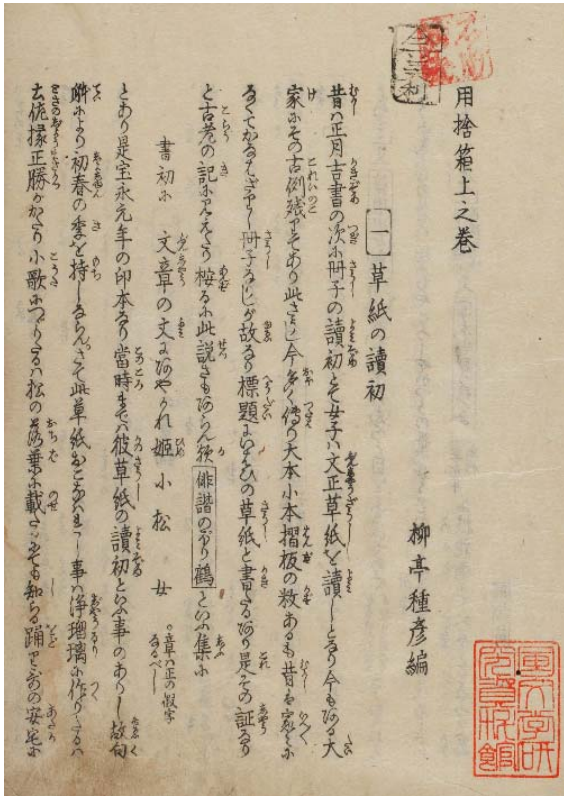 用捨箱上之巻
柳亭種彦編
一 草紙の讀初
昔ハ正月吉書の次に冊子の讀初とて女子ハ文正草紙を讀しとなり今もある大
家にハその古例残りてあり此さうし今多く傳り大本小本摺板の数あるも昔ハ家ごとに
なくてかなハざりし冊子なりしが故なり標題にいはひの草紙と書たるあり是その証なり
と古老の記に見えたり按るに此説さもあらん欤俳諧のぼり鶴といふ集に
書初に 文章の文にあやかれ姫小松 女 。章ハ正の假字なるべし
とあり是宝永元年の印本なり當時までハ彼草紙の讀初といふ事のありし故句
解により初春の季を持しならん。さて此草紙おこなハれし事ハ浄瑠璃に作りたるハ
土佐掾正勝がかたり小歌につゞりたるハ松の落葉に載たれバ誰も知る踊りくどきの安宅に